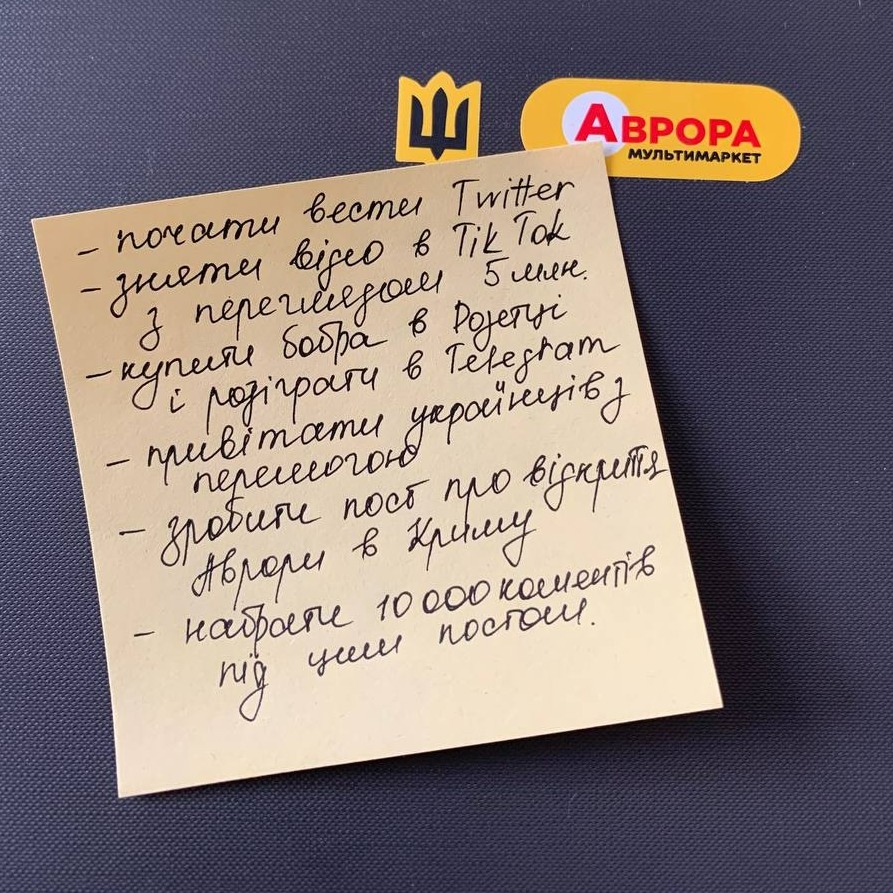 АВРОРА
МУЛЬТИМАРКЕТ
- почати вести Twitter
- зняти відео в TikTok
з переглядом 5 млн.
- купити бобра в Розетці
і розіграти в Telegram
- привітати українців з
перемогою
- зробити пост про відкриття
Аврори в Криму
- набрати 10 000 коментів
під цим постом.